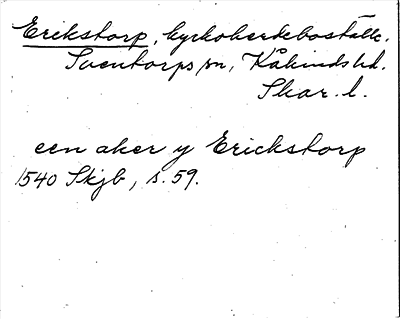 Erikstorp, kyrkoherdeboställe.
Sventorps sn, Kåkinds hd.
Skar. l.
een aker y Erickstorp
1540 Skjb, s. 59.